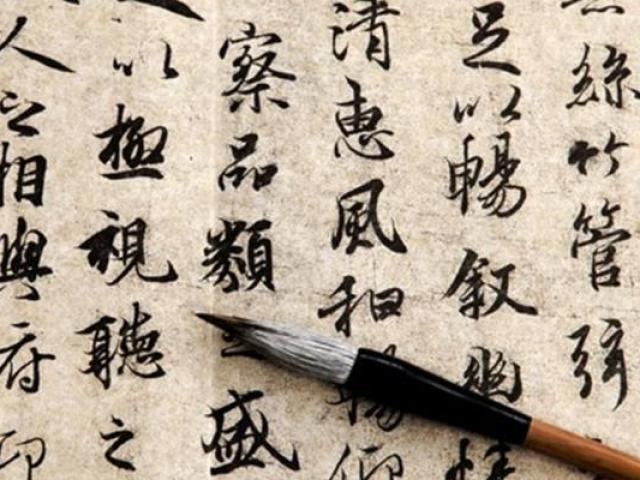 絲竹管弦
足以暢叙幽情
清惠風和暢仰
察品類之盛
以極視聽之
人之相與俯仰